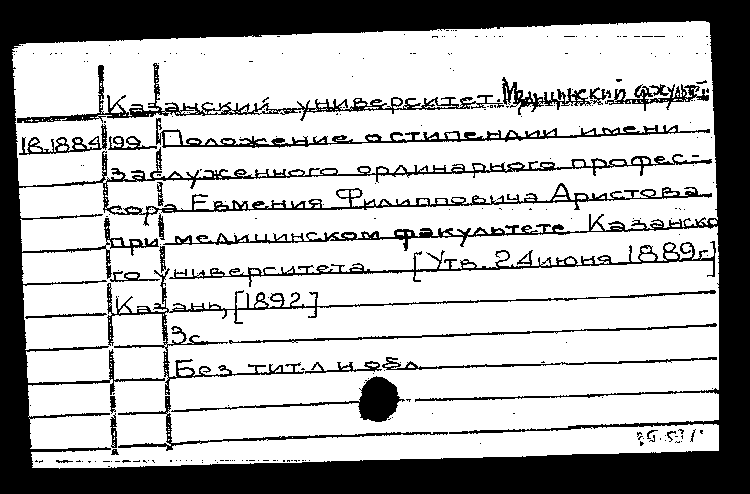 Казанский университет. Медицинский факультет
18.1884 199 Положение о стипендии имени
заслуженного ординарного профес-
сора Евмения Филипповича Аристова
при медицинском факультете Казанско
го университета. [Утв. 24 июня 1889г.]
Казань, [1892]
3с.
Без тит. л и обл.